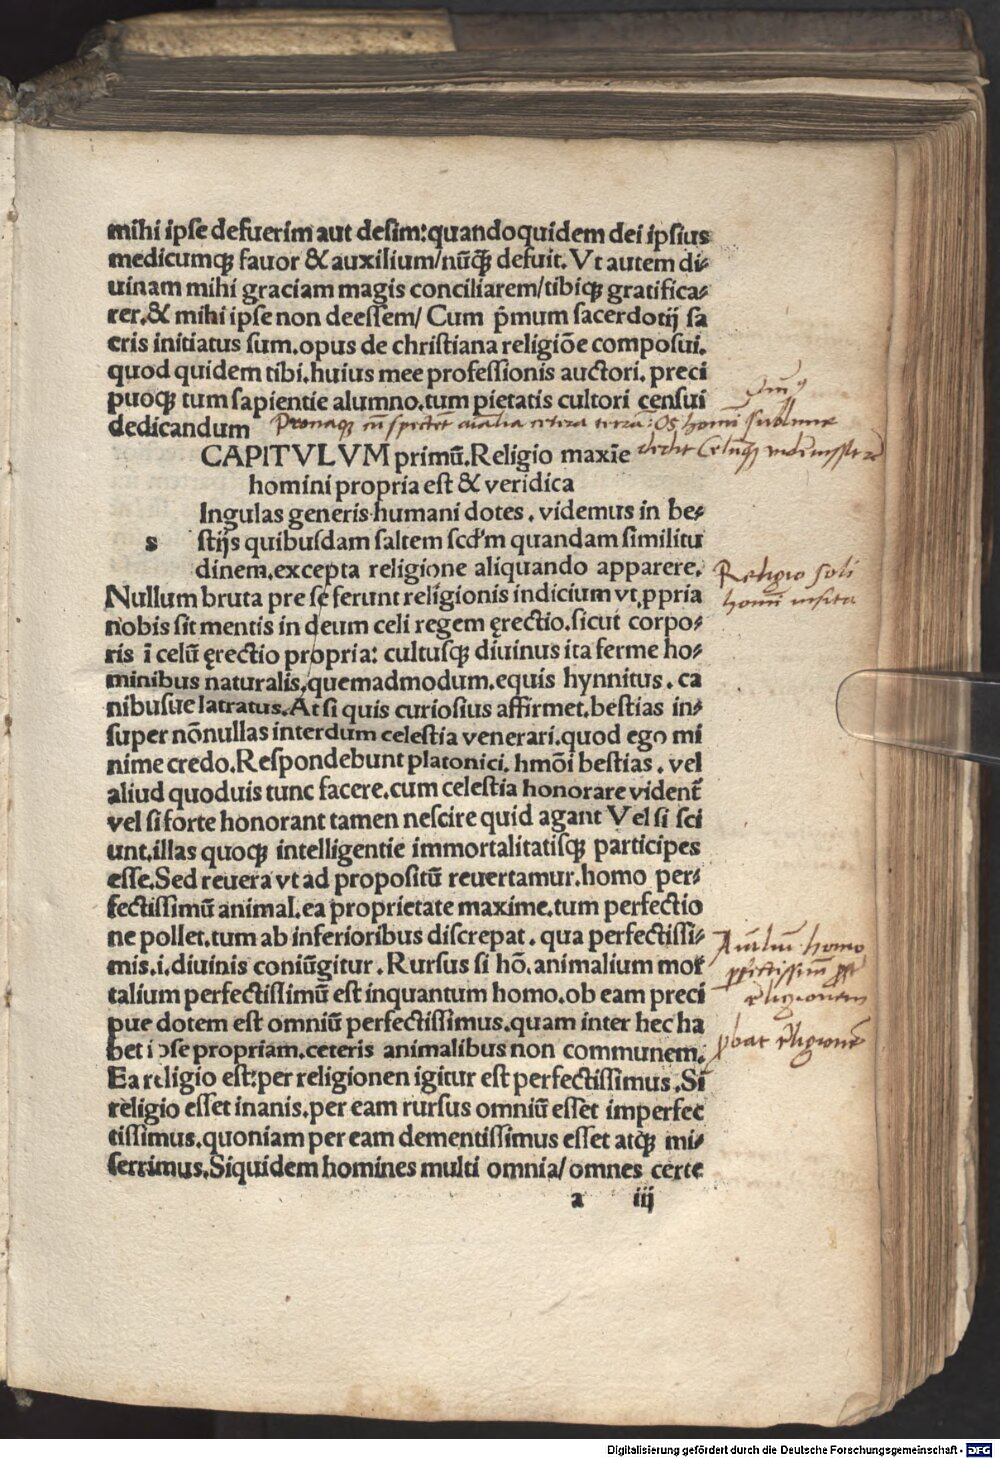 mihi ipse defuerim aut desim:quandoquidem dei ipsius
medicumqꝫ fauor & auxilium/nūꝙ̃ defuit. Vt autem di⸗
uinam mihi graciam magis conciliarem/tibiqꝫ gratifica⸗
rer.& mihi ipse non deessem/ Cum p̄mum sacerdotij sa
cris initiatus sum.opus de christiana religiōe composui.
quod quidem tibi.huius mee professionis auctori. preci
puoqꝫ tum sapientie alumno.tum pietatis cultori censui
dedicandum
Pronaqꝫ cū spectēt aīalia cetera terrā: Os homī sublime
dedit Celūqꝫ videre
CAPITVLVM primū.Religio maxīe
homini propria est & veridica
Ingulas generis humani dotes . videmus in be⸗
s stijs quibusdam saltem scd'm quandam similitu
dinem.excepta religione aliquando apparere.
Religio soli
homī insita
Nullum bruta pre se ferunt religionis indicium vt ꝓpria
nobis sit mentis in deum celi regem ęrectio.sicut corpo⸗
ris ī celū ęrectio propria: cultusqꝫ diuinus ita ferme ho⸗
minibus naturalis.quemadmodum.equis hynnitus . ca
nibusue latratus.At si quis curiosius affirmet.bestias in⸗
super nōnullas interdum celestia venerari.quod ego mi
nime credo.Respondebunt platonici. hmōi bestias . vel
aliud quoduis tunc facere.cum celestia honorare vident̃
vel si forte honorant tamen nescire quid agant Vel si sci
unt.illas quoqꝫ intelligentie immortalitatisqꝫ participes
esse.Sed reuera vt ad propositū reuertamur.homo per⸗
fectissimū animal.ea proprietate maxime.tum perfectio
ne pollet.tum ab inferioribus discrepat . qua perfectissi⸗
mis.i.diuinis coniūgitur . Rursus si hō.animalium mor
talium perfectissimū est inquantum homo.ob eam preci
pue dotem est omniū perfectissimus.quam inter hec ha
bet ipse propriam.ceteris animalibus non communem.
Aīalium homo
perfectissimū
religionem
ꝓbat religionē
Ea religio est:per religionen igitur est perfectissimus .Si
religio esset inanis.per eam rursus omniū esset imperfec
tissimus.quoniam per eam dementissimus esset atqꝫ mi⸗
serrimus.Siquidem homines multi omnia/omnes certe
a iij
Digitalisierung gefördert durch die Deutsche Forschungsgemeinschaft - DFG